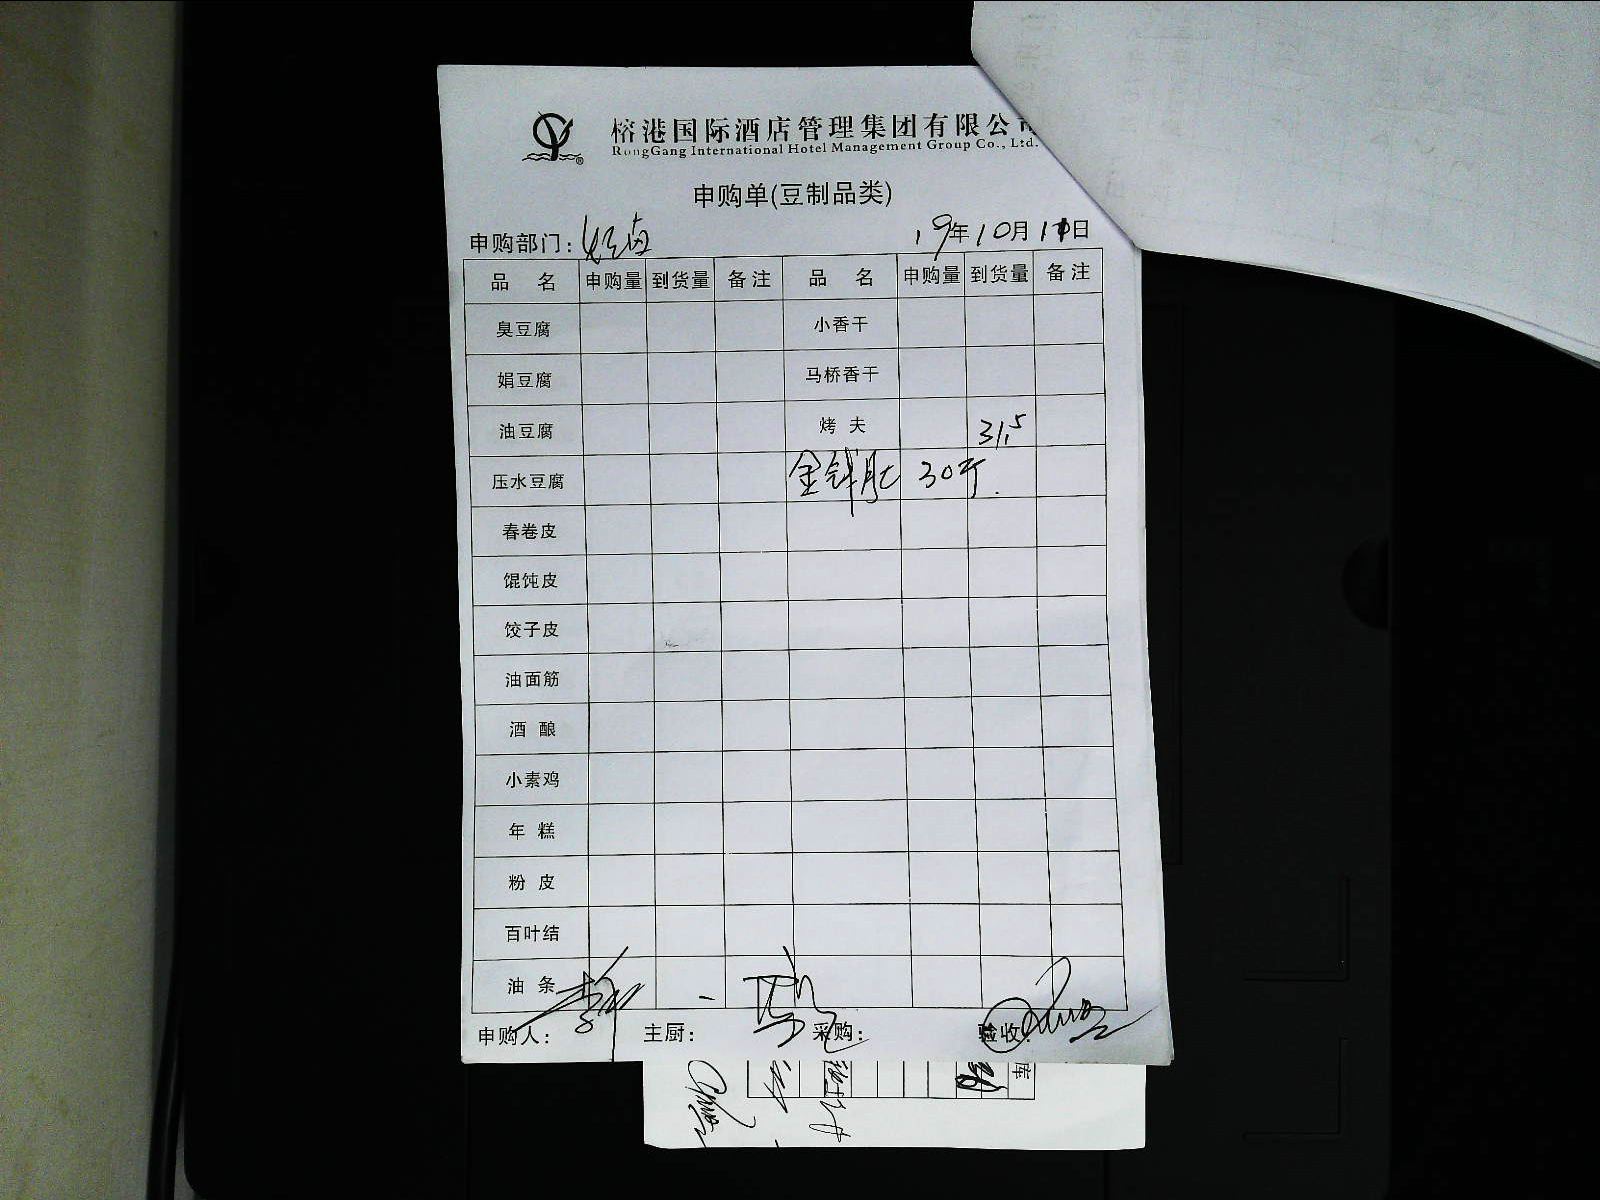 榕港国际酒店管理集团有限公司
RongGang International Hotel Management Group Co., Ltd.
申购单(豆制品类)
申购部门: 19年10月11日
品 名 申购量 到货量 备注 品 名 申购量 到货量 备注
臭豆腐 小香干
娟豆腐 马桥香干
油豆腐 烤 夫 31.5
压水豆腐 金钱肚 30斤.
春卷皮
馄饨皮
饺子皮
油面筋
酒 酿
小素鸡
年 糕
粉 皮
百叶结
油 条
申购人: 主厨: 采购: 验收:
库